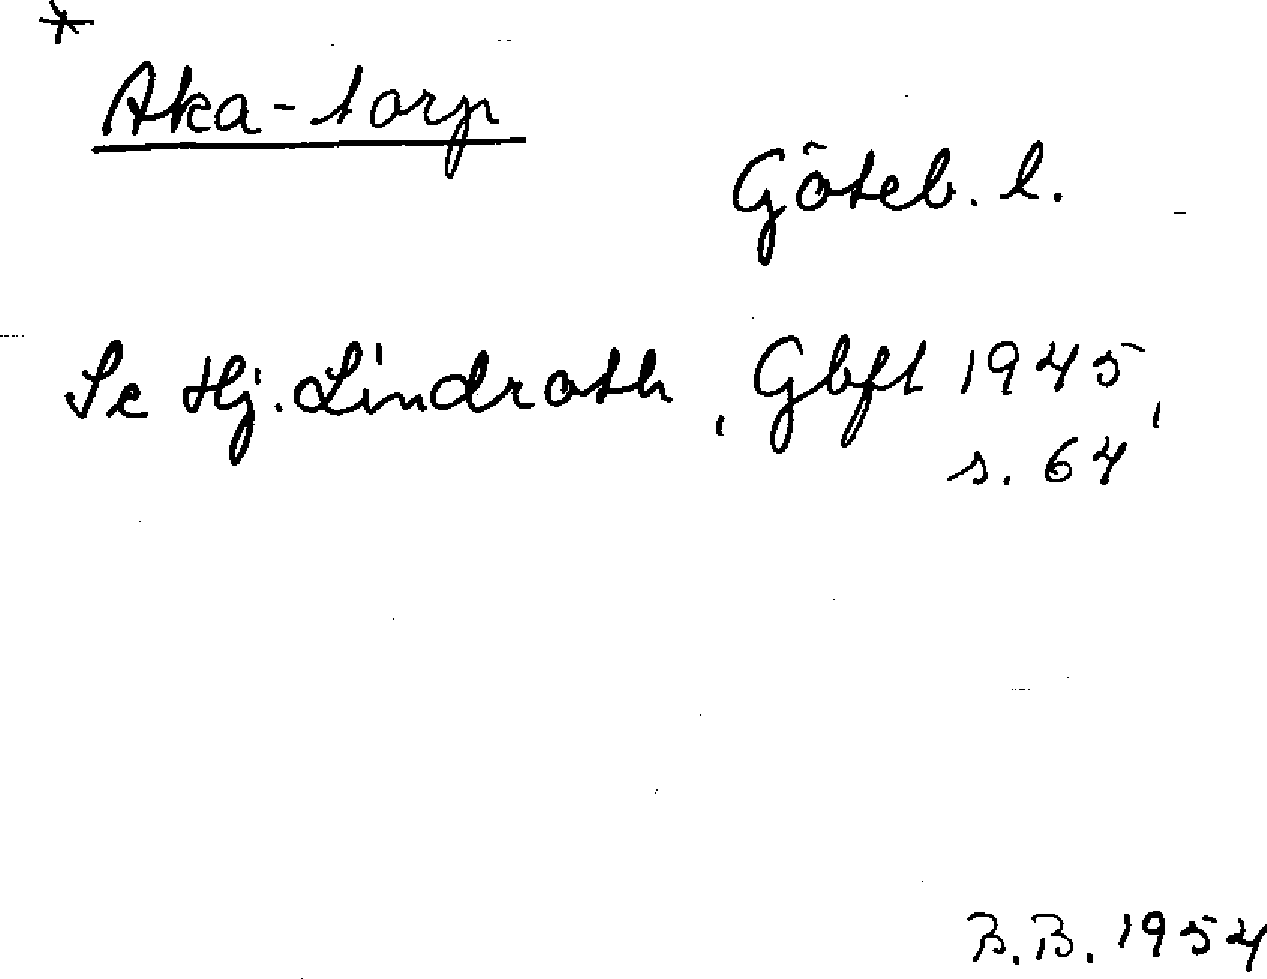 *
Aka-torp
Göteb. l.
Se Hj. Lindroth, Gbft 1945,
s. 64
B.B. 1954